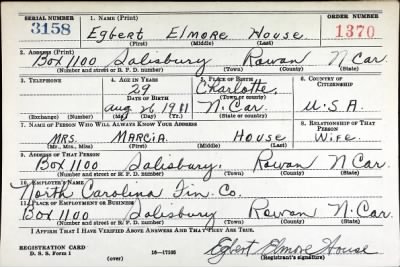 SERIAL NUMBER 1. NAME (Print) ORDER NUMBER
3158 Egbert Elmore House 1370
(First) (Middle) (Last)
2. ADDRESS (Print)
Box 1100 Salisbury Rowan N Car.
(Number and street or R. F. D. number) (Town) (County) (State)
3. TELEPHONE 4. AGE IN YEARS 5. PLACE OF BIRTH 6. COUNTRY OF CITIZENSHIP
29 Charlotte,
DATE OF BIRTH (Town or county)
Aug 26 1911 N. Car. U.S.A.
(Exchange) (Number) (Mo.) (Day) (Yr.) (State or country)
7. NAME OF PERSON WHO WILL ALWAYS KNOW YOUR ADDRESS 8. RELATIONSHIP OF THAT PERSON
MRS. MARCIA HOUSE Wife.
(Mr., Mrs., Miss) (First) (Middle) (Last)
9. ADDRESS OF THAT PERSON
Box 1100 Salisbury. Rowan N Car.
(Number and street or R. F. D. number) (Town) (County) (State)
10. EMPLOYER'S NAME
North Carolina Fin. Co.
11. PLACE OF EMPLOYMENT OR BUSINESS
Box 1100 Salisbury Rowan N. Car.
(Number and street or R. F. D. number) (Town) (County) (State)
I AFFIRM THAT I HAVE VERIFIED ABOVE ANSWERS AND THAT THEY ARE TRUE.
REGISTRATION CARD
D. S. S. Form 1 16—17105 Egbert Elmore House
(Registrant's signature)